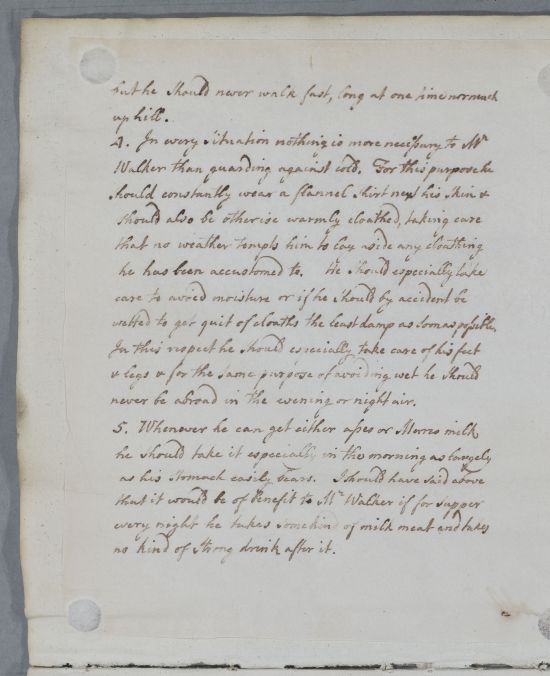 but he should never walk fast, long at one time nor much
up hill.
4. In every situation nothing is more necessary to Mr
Walker than guarding against cold. For this purpose he
should constantly wear a flannel shirt next his skin &
should also be otherise warmly cloathed, taking care
that no weather tempts him to lay aside any cloathing
he has been accustomed to. He should especially take
care to avoid moisture or if he should by accident be
wetted to get quit of cloaths the least damp as soon as possible.
In this respect he should especially take care of his feet
& legs & for the same purpose of avoiding wet he should
never be abroad in the evening or night air.
5. Whenever he can get either asses or Mares milk
he should take it especially in the morning as largely
as his stomach easily bears. I should have said above
that it would be of benefit to Mr Walker if for supper
every night he takes some kind of milk meat and takes
no kind of strong drink after it.